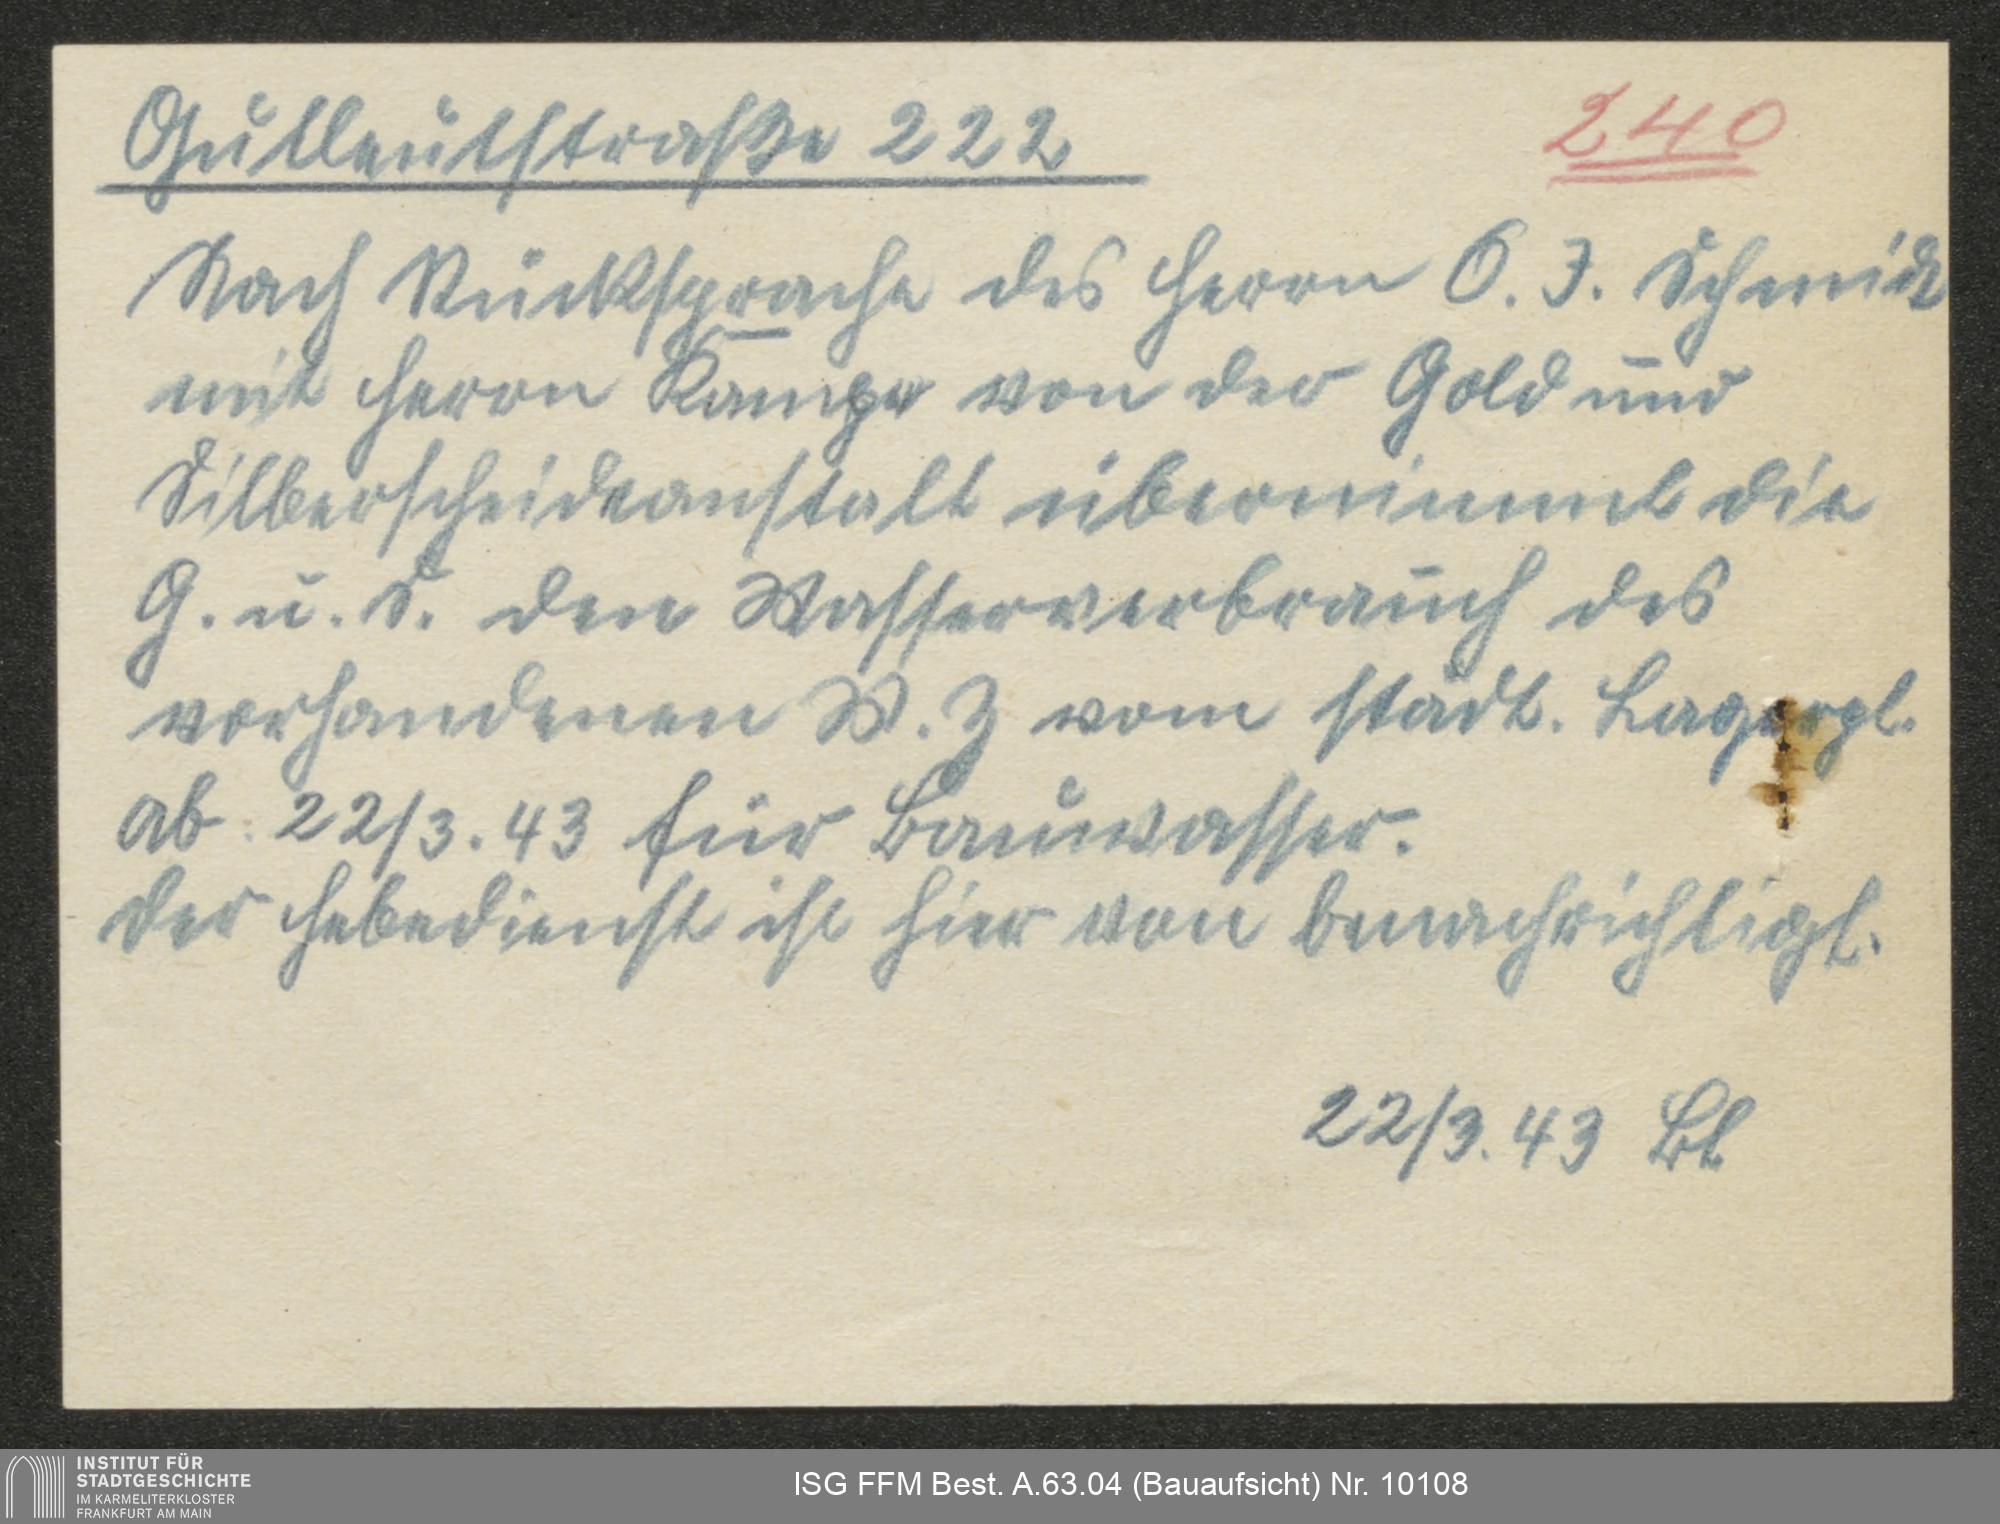 Gutleutstraße 222
240
Nach Rücksprache des Herrn O. J. Schmidt
mit Herrn Kampe von der Gold und
Silberscheideanstalt übernimmt die
G. u. S. den Wasserverbrauch des
vorhandenen W. Z vom städt. Lagerpl.
ab 22/3.43 für Bauwasser.
Der Hebedienst ist hier von benachrichtigt.
22/3.43 Bl
INSTITUT FÜR
STADTGESCHICHTE
IM KARMELITERKLOSTER
FRANKFURT AM MAIN
ISG FFM Best. A.63.04 (Bauaufsicht) Nr. 10108